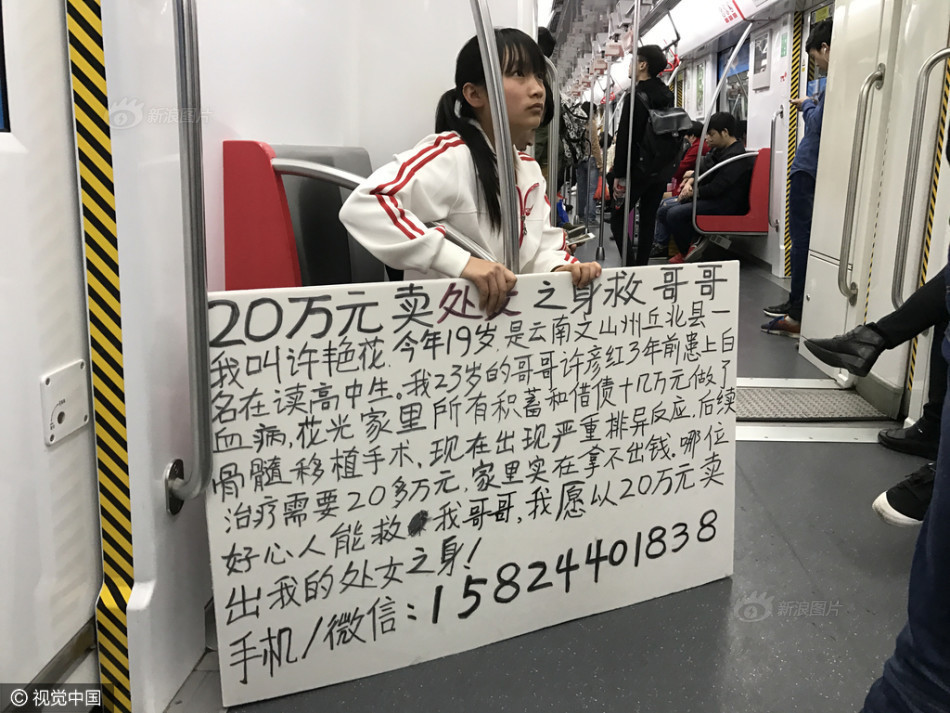 20万元卖处女之身救哥哥
我叫许艳花.今年19岁,是云南文山州丘北县一
名在读高中生.我23岁的哥哥许彦红3年前患上白
血病,花光家里所有积蓄和借债十几万元做了
骨髓移植手术.现在出现严重排异反应,后续
治疗需要20多万元,家里实在拿不出钱.哪位
好心人能救我哥哥,我愿以20万元卖
出我的处女之身!
手机/微信:15824401838
新浪图片
新浪图片
©视觉中国